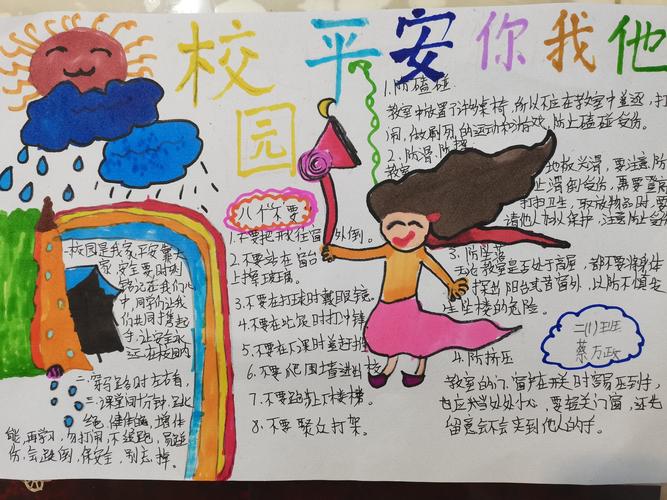 校园平安你我他
1.防磕碰
教室中放置了许多桌椅,所以不应在教室中追逐,打
闹,做剧烈的运动和游戏,防止磕碰受伤。
2.防滑、防摔
教室
地板光滑,要注意防
止滑倒受伤,需要登高
打扫卫生、取放物品时,要
请他人加以保护,注意防止
3.防坠落
无论教室是否处于高层,都不要将身体
探出阳台或者窗外,以防不慎发
生坠楼的危险。
4.防挤压
教室的门、窗户在开关时容易压到手,
也应当处处小心,要轻关门窗,还先
留意会不会夹到他人的手。
二(1)卫生
蔡
八个不要
1.不要把水往窗外倒。
2.不要站在窗台
上擦玻璃。
3.不要在打球时戴眼镜。
4.不要在比赛时打冲锋
5.不要在下课时
6.不要爬围墙进出校
7.不要跑上下楼梯。
8.不要聚众打架。
一校园是我家,平安靠大
家,安全要时刻
铭记在我们心
中,同学们让我
们共同携起
手,让安全永
远在校园内
二:穿马路时左右看,
三:课堂间十分钟,
健体魄,增体
能,再学习,勿打闹,不缓跑,易碰
伤,会跌倒,保安全,别忘掉。